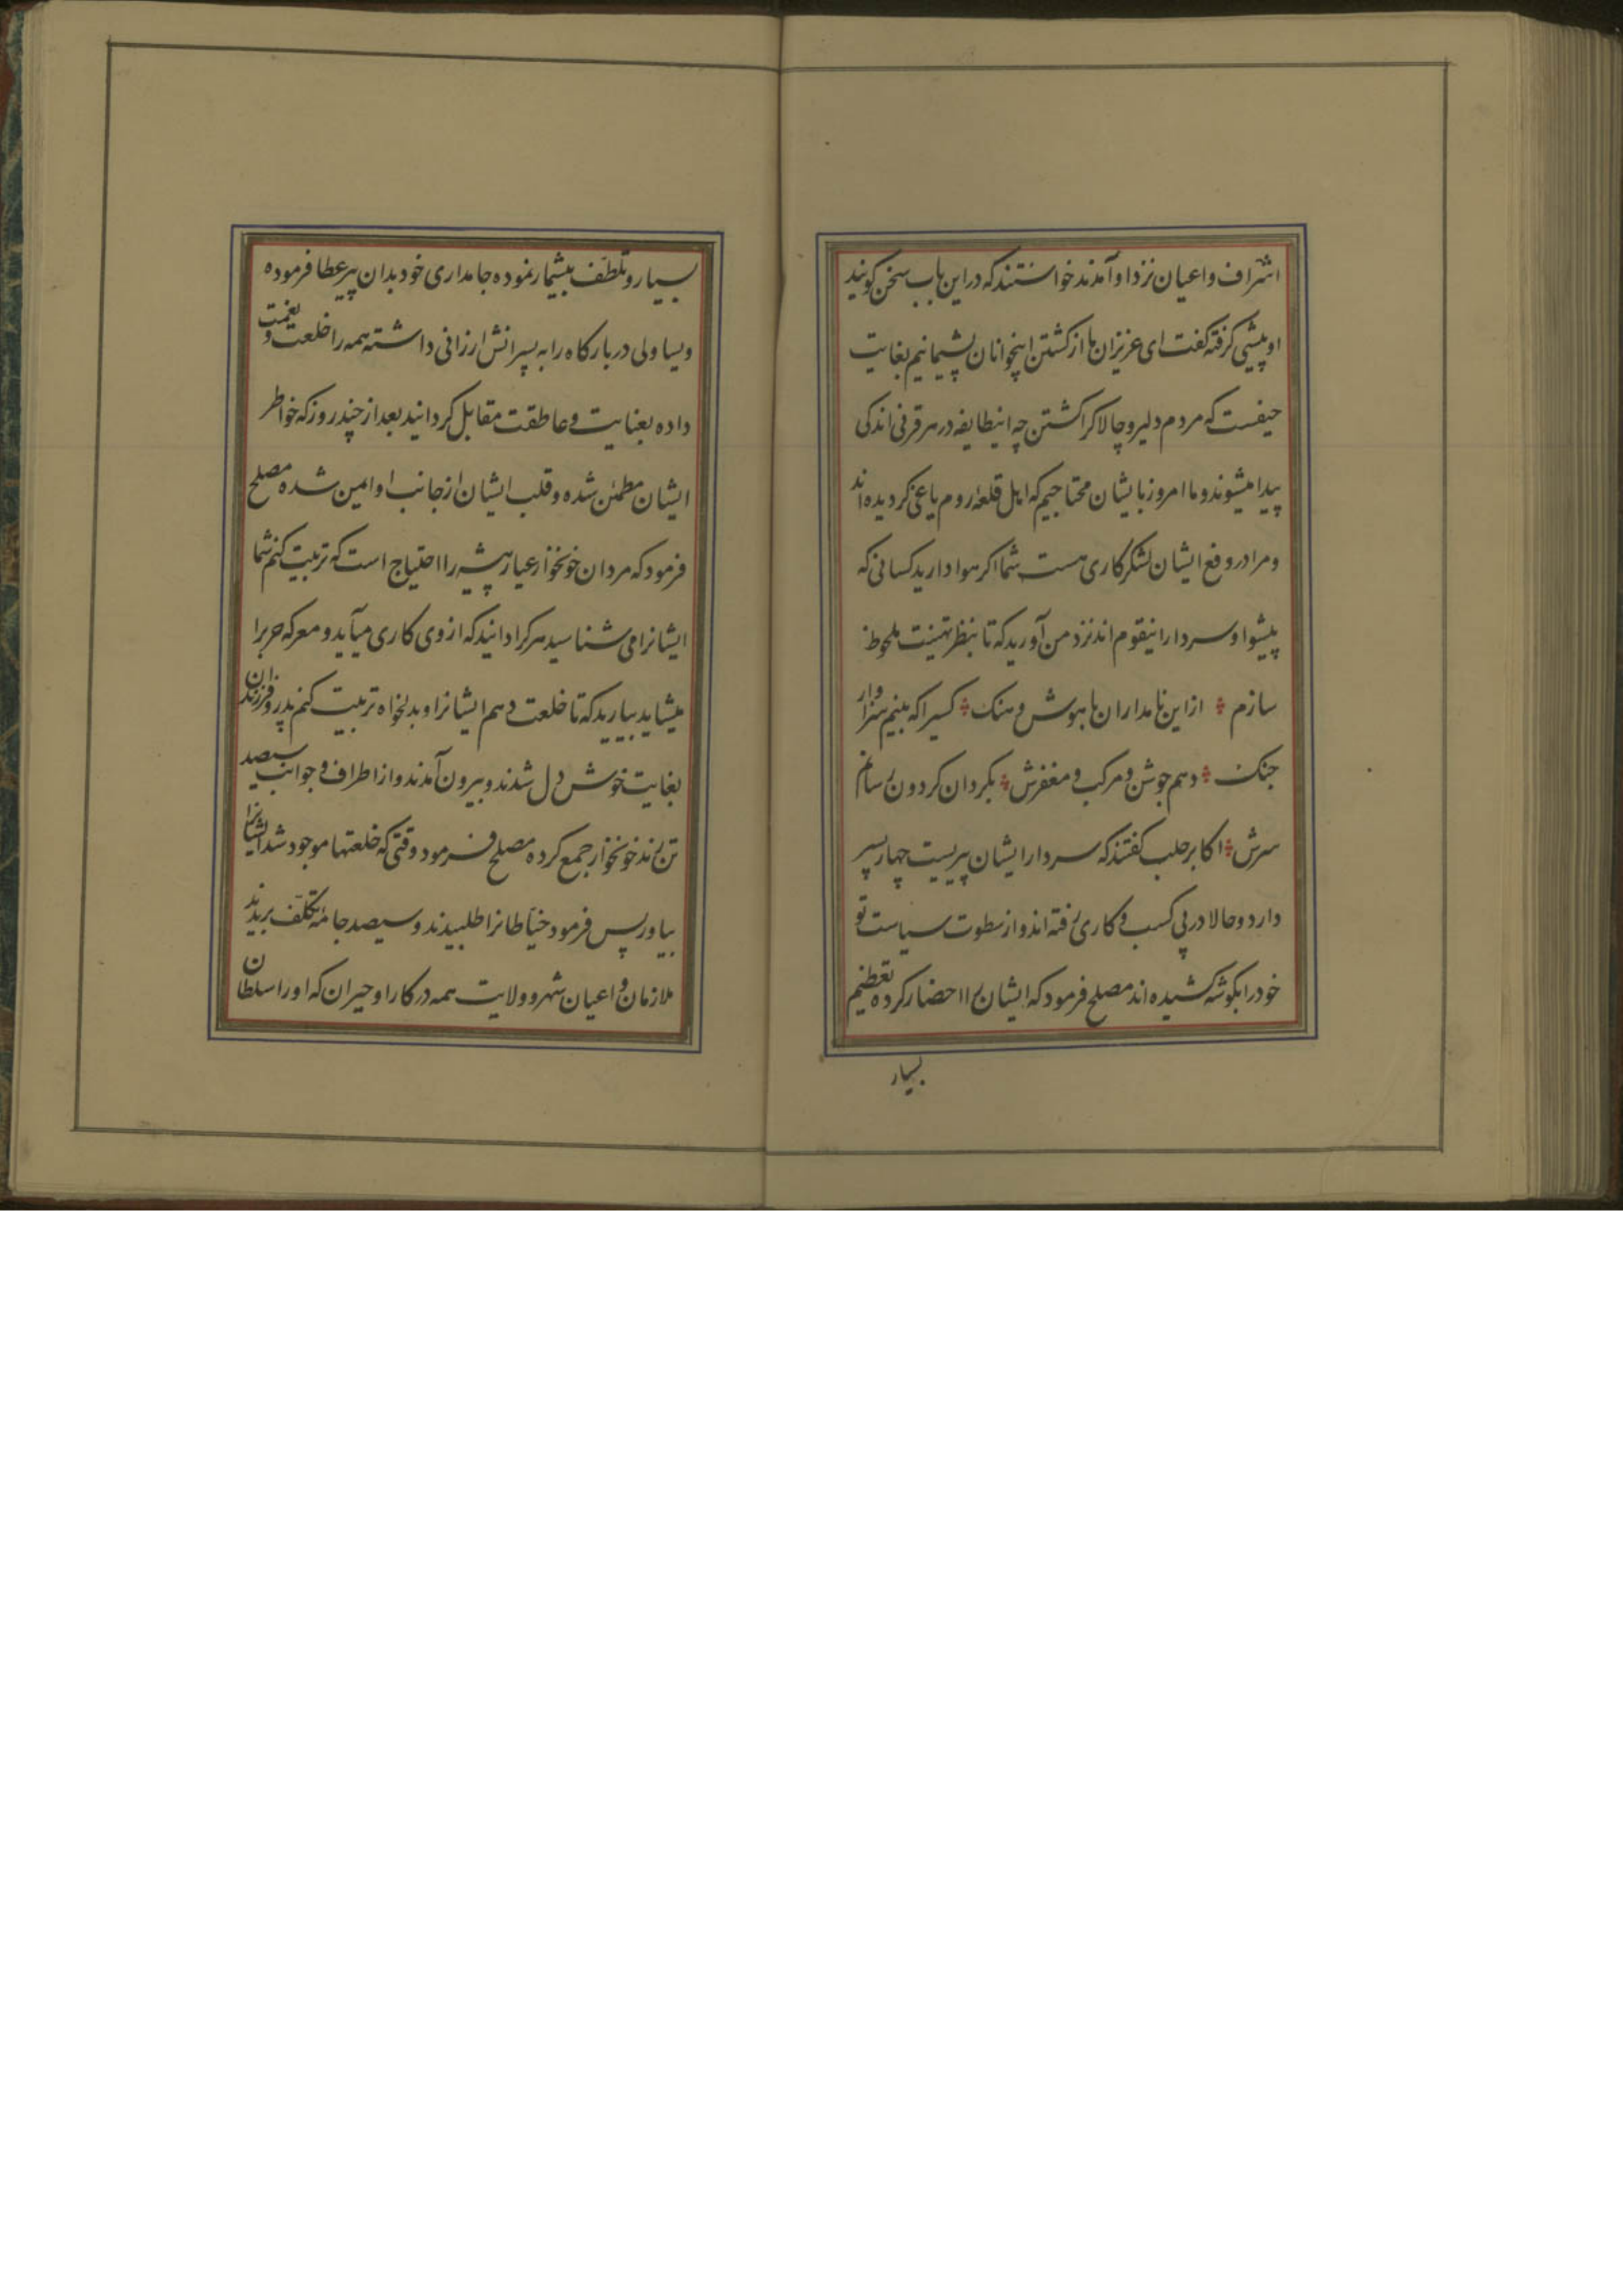 اشراف و اعیان نزد او آمدند خواستند که در این باب سخن کویند
او پیشی کرفته کفت ای عزیزان ما از کشتن اینجوانان پشیمانیم بغایت
حیفست که مردم دلیر و چالاکرا کشتن چه اینطایفه در هر قرنی اندکی
پیدا میشوند و ما امروز بایشان محتاجیم که اهل قلعه روم یاغی کردیده اند
و مرا در دفع ایشان لشکر کاری هست شما اکر هوادارید کسانی که
پیشوا و سردار اینقوم اند نزد من آورید که تا بنظر تهنیت ملحوظ
سازم ؞ از این نامداران با هوش و هنک ؞ کسیرا که بینم سزاوار
جنک ؞ دهم جوشن و مرکب و مغفرش ؞ بکردان کردون رسانم
سرش ؞ اکابر حلب کفتند که سردار ایشان پیریست چهار پسر
دارد و حالا در پی کسب و کاری رفته اند و از سطوت سیاست تو
خود را بکوشه کشیده اند مصلح فرمود که ایشان را احضار کرده تعظیم
بسیار
بسیار و تلطف بیشمار نموده جامداری خود بدان پیر عطا فرموده
و یساولی دربارکاه را به پسرانش ارزانی داشته همه را خلعت و نعمت
داده بعنایت و عاطفت مقابل کردانید بعد از چند روز که خواطر
ایشان مطمئن شده و قلب ایشان از جانب او ایمن شده مصلح
فرمود که مردان خونخوار عیار پیشه را احتیاج است که تربیت کنم شما
ایشانرا می شناسید هر کرا دانید که از وی کاری میآید و معرکه حربرا
میشاید بیارید که تا خلعت دهم ایشانرا و بدلخواه تربیت کنم پدر و فرزندان
بغایت خوش دل شدند و بیرون آمدند و از اطراف و جوانب سیصد
تن رند خونخوار جمع کرده مصلح فرمود وقتی که خلعتها موجود شد ایشانرا
بیاور پس فرمود خیاطانرا طلبیدند و سیصد جامه تکلف بریدند
ملازمان و اعیان شهر و ولایت همه در کار او حیران که او را سلطان